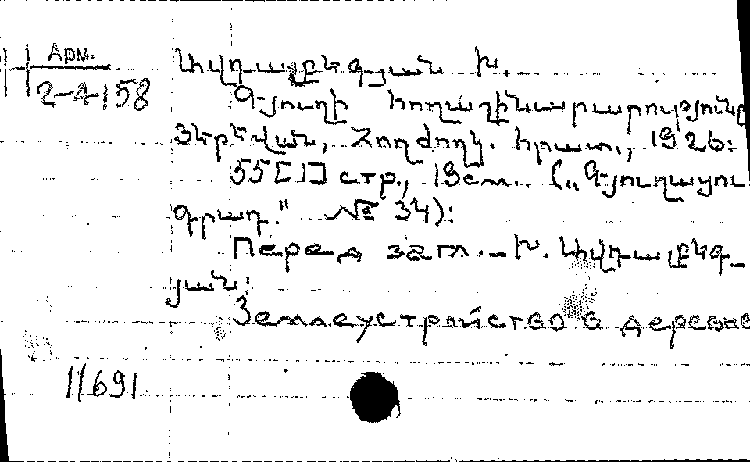 Арм.
2-4-158
Խ.
Գյուղի հողաշինարարությունը
Յերևան, Հողժողկ. հրատ., 1926։
55[1] стр., 19см. („Գյուղատն
գրադ." № 34)։
Перед загл.- Խ.
յան։
Землеустройство в деревне
11691